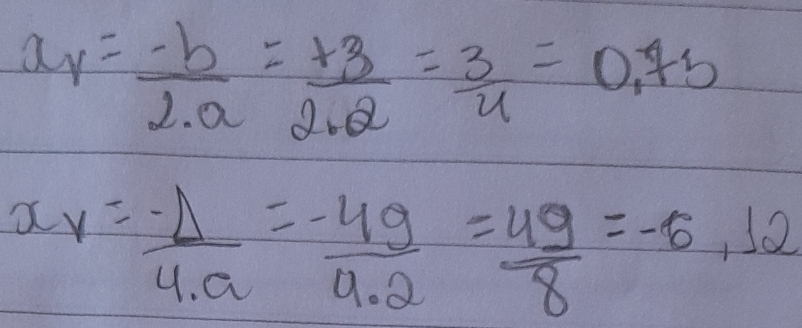 xv = -b/2.a = +3/2.2 = 3/4 = 0,75
xv = -Δ/4.a = -49/4.2 = 49/8 = -6,12